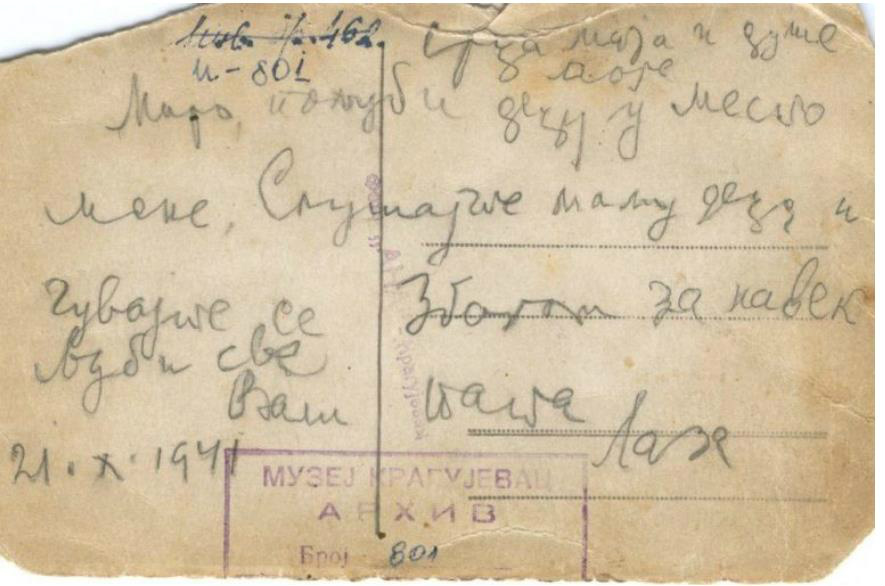 И-801
Срца моја и душе
моје
Маро, пољуби децу у место
мене, Слушајте маму деца и
Чувајте се Збогом за навек
Љуби све
Ваш тата Лаза
21.X.1941
МУЗЕЈ КРАГУЈЕВАЦ
АРХИВ
Број 801